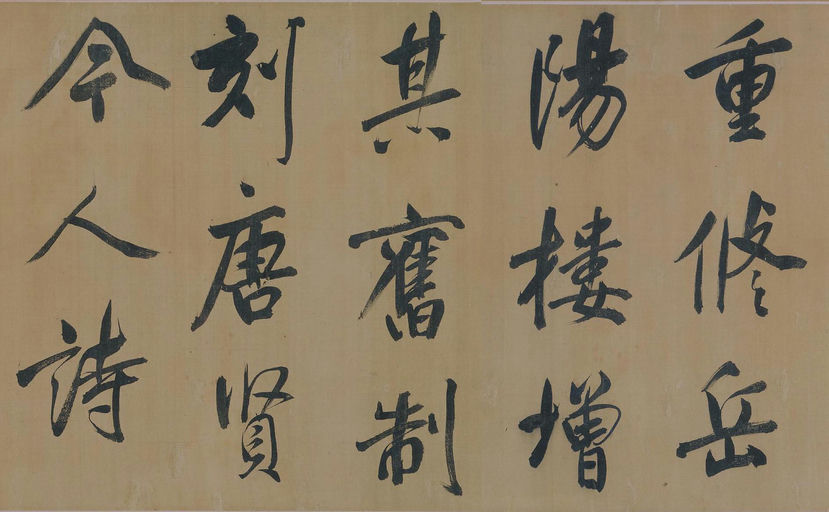 重修岳
陽樓增
其舊制
刻唐賢
今人詩